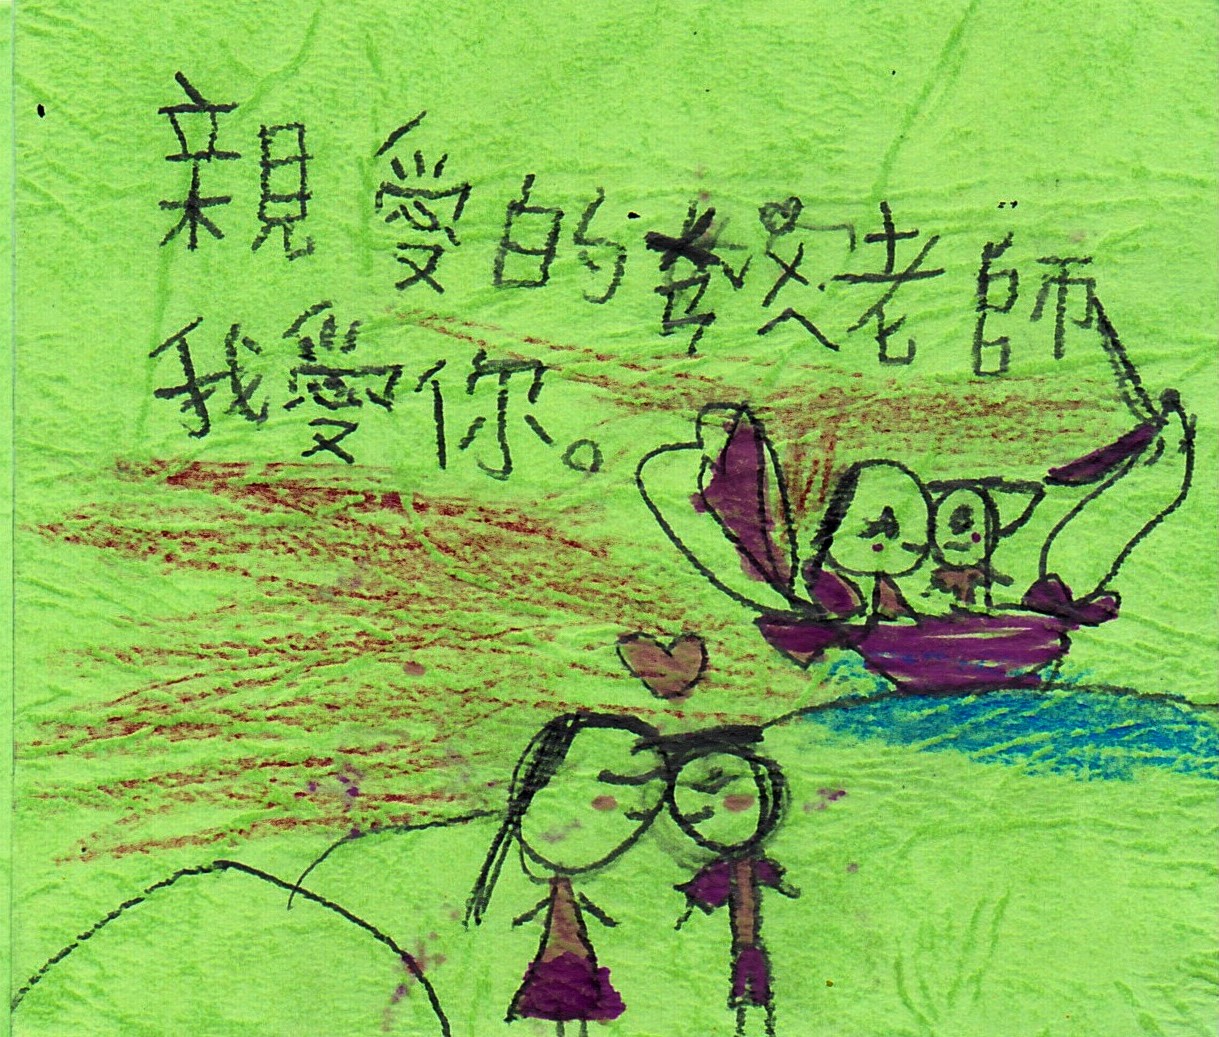 親愛的老師
我愛你。